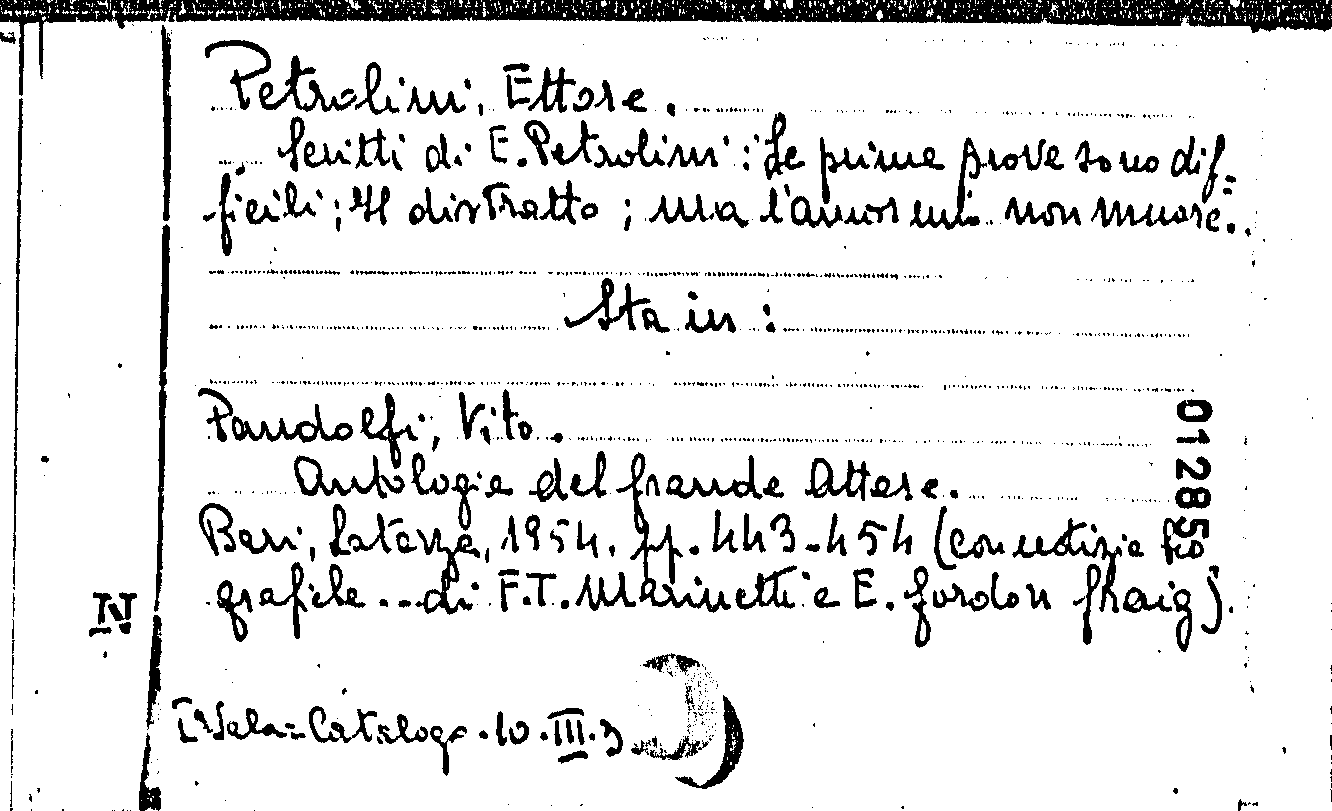 Petrolini, Ettore.
Scritti di E. Petrolini: Le prime prove sono dif-
ficili; Il distratto; ma l'amor mio non muore.
Sta in:
Pandolfi, Vito.
Antologia del grande Attore.
Bari, Laterza, 1954. pp. 443-454 (con notizie bio
grafiche... di F.T. Marinetti e E. Gordon Ghaig).
012853
IV
Iª Sala-Catalogo. 10. III. 3